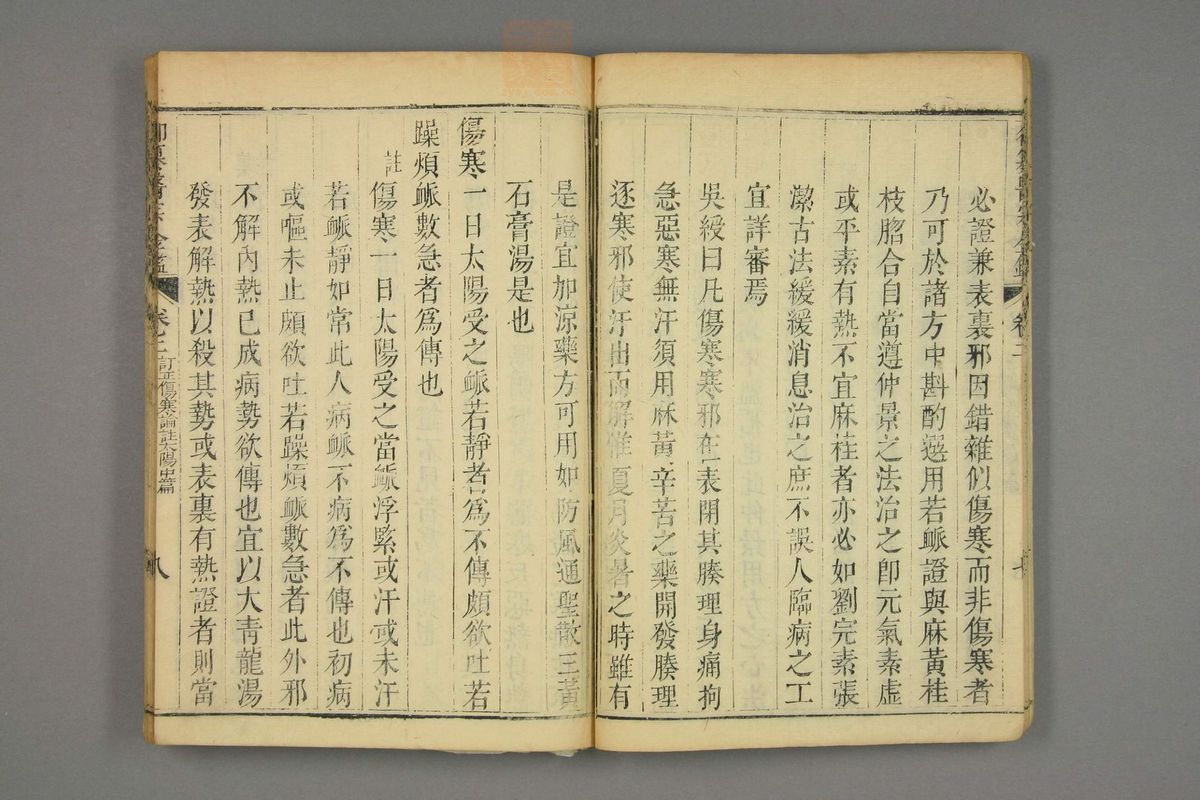 必證兼表裏邪因錯雜似傷寒而非傷寒者
乃可於諸方中斟酌選用若脈證與麻黃桂
枝脗合自當遵仲景之法治之卽元氣素虛
或平素有熱不宜麻桂者亦必如劉完素張
潔古法緩緩消息治之庶不誤人臨病之工
宜詳審焉
吳綬曰凡傷寒寒邪在表閉其腠理身痛拘
急惡寒無汗須用麻黃辛苦之藥開發腠理
逐寒邪使汗出而解惟夏月炎暑之時雖有
是證宜加涼藥方可用如防風通聖散三黃
石膏湯是也
傷寒一日太陽受之脈若靜者爲不傳頗欲吐若
躁煩脈數急者爲傳也
註傷寒一日太陽受之當脈浮緊或汗或未汗
若脈靜如常此人病脈不病爲不傳也初病
或嘔未止頗欲吐若躁煩脈數急者此外邪
不解內熱已成病勢欲傳也宜以大靑龍湯
發表解熱以殺其勢或表裏有熱證者則當
卷二 訂正傷寒論註太陽中篇 八